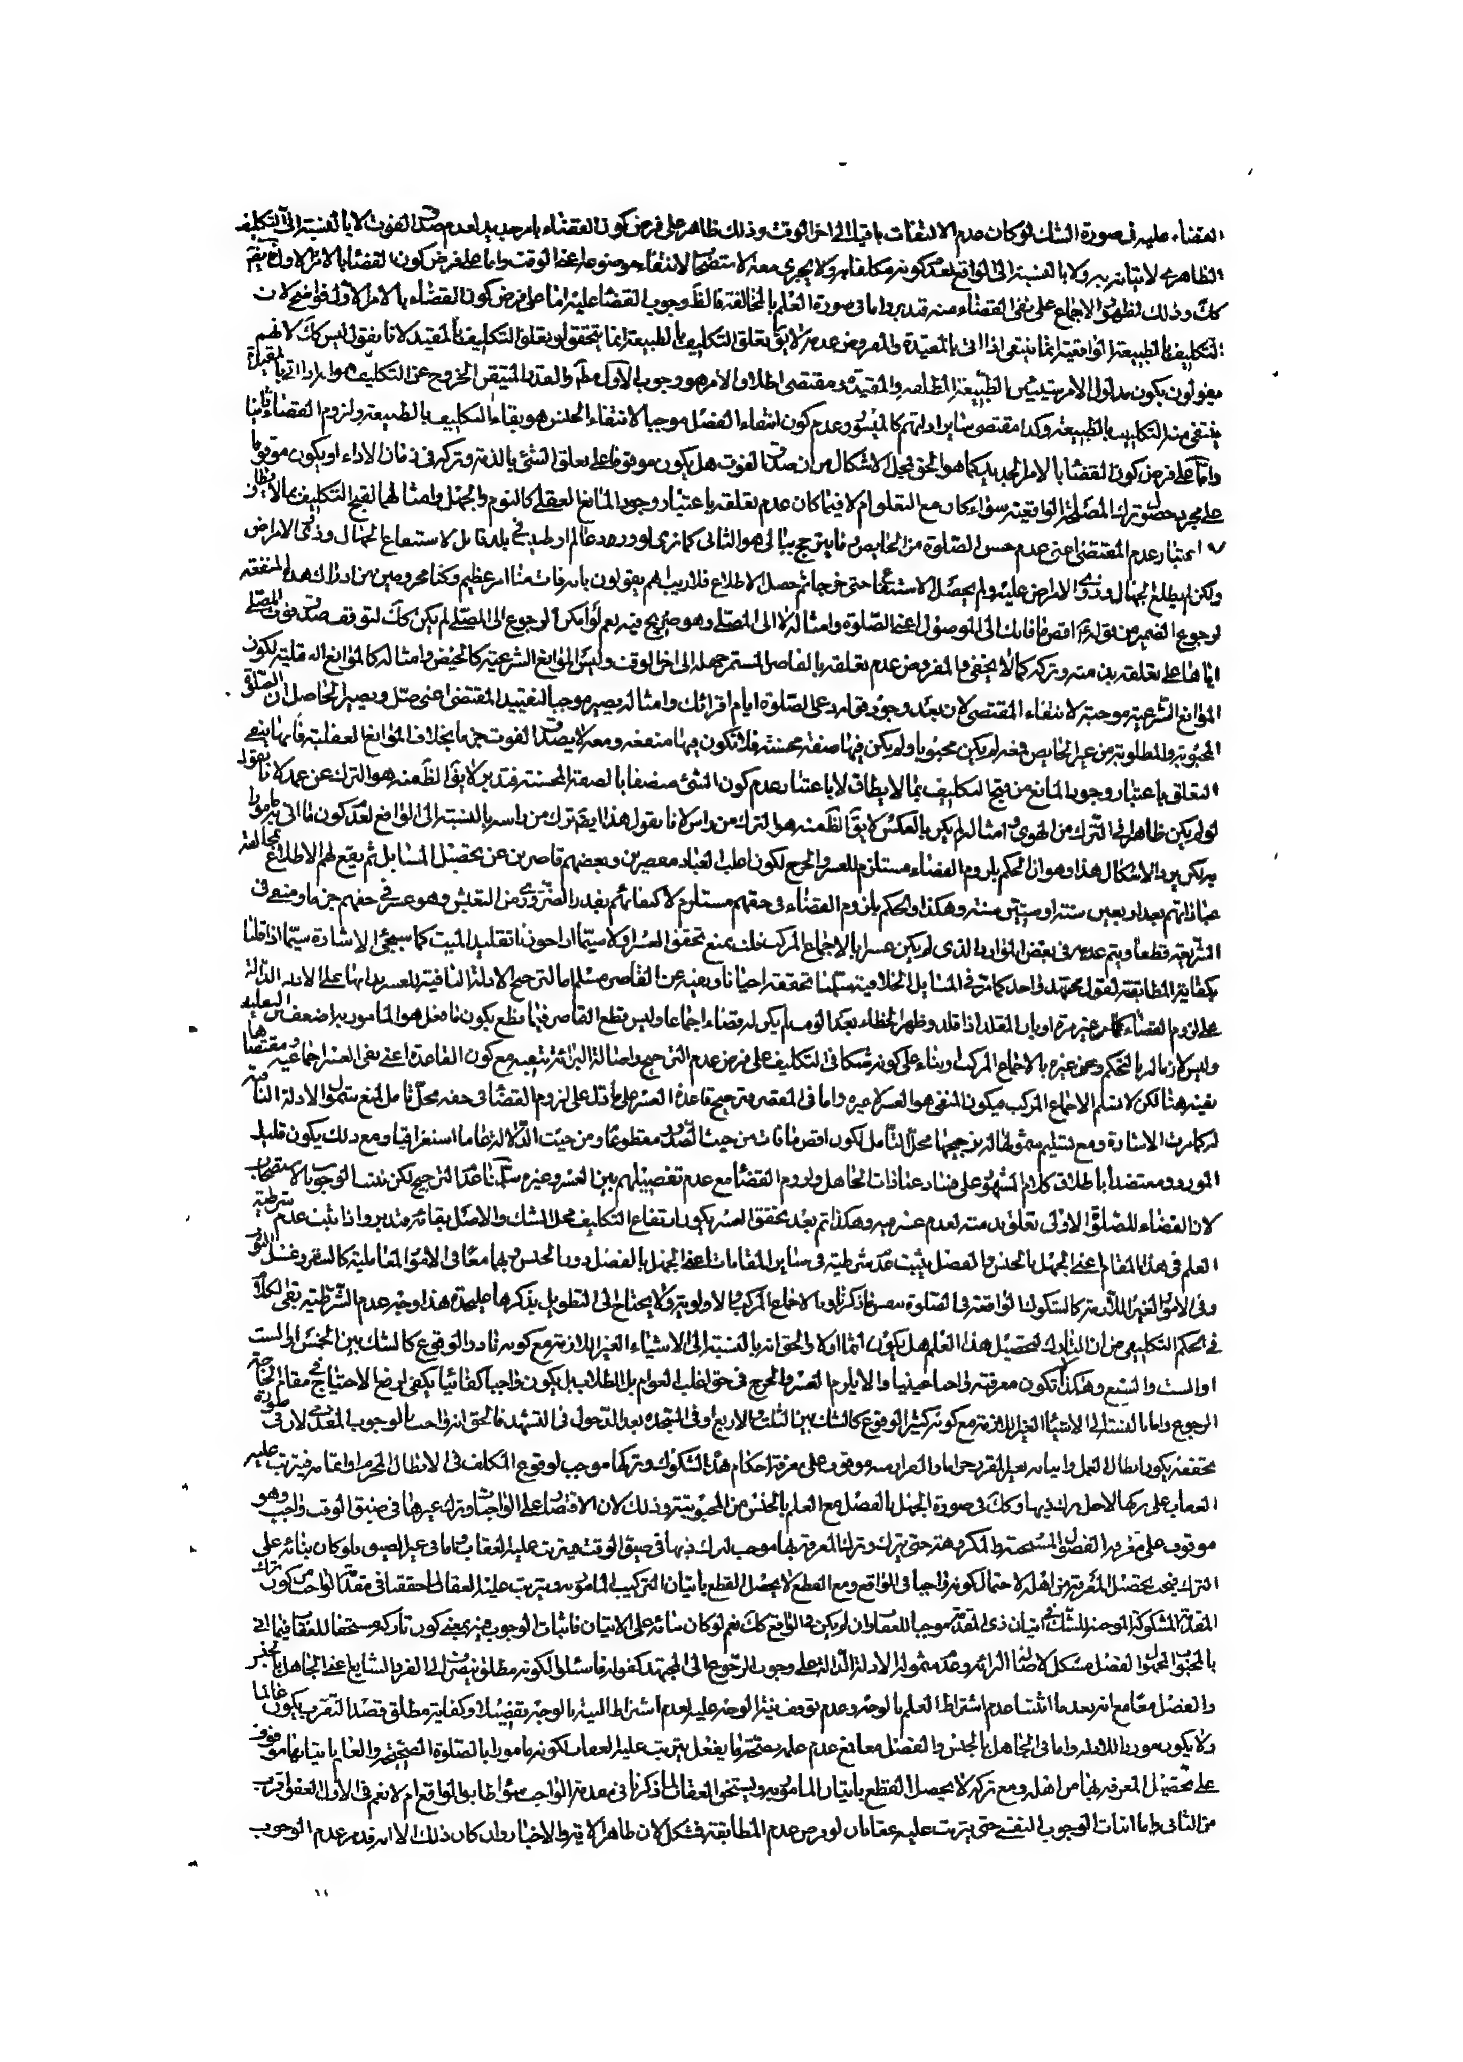 القضاء عليه فى صورة الشك لو كان عدم الالتفات باقيا الى اخر الوقت وذلك ظاهر على فرض كون القضاء بامر جديد لعدم صدق الفوت لا بالنسبة الى التكليف
الظاهرى لاتيانه به ولا بالنسبة الى الواقع لعدم كونه مكلفا به ولا يجرى معه الاستصحاب لانتفاء موضوعه اعنى الوقت واما على فرض كون القضاء بالامر الاول
كك وذلك لظهور الاجماع على نفى القضاء منه فتدبر واما فى صورة العلم بالمخالفة فالظ وجوب القضاء عليه اما على فرض كون القضاء بالامر الاول فواضح لان
التكليف بالطبيعة الواقعية انما ينتفى اذا اتى بالمقيدة والمفروض عدمه لا يق تعلق التكليف بالطبيعة انما يتحقق لو تعلق التكليف بالمقيد لانا نقول ليس كك لانهم
يقولون بكون مدلول الامر الطبيعة المطلقة والمقيدة ومقتضى اطلاق الامر هو وجوب الاول مط والقدر المتيقن الخروج عن التكليف هو اذا اتى
ينتفى منه التكليف بالطبيعة وكذا مقتضى ساير ادلتهم كالميسور وعدم كون انتفاء الفصل موجبا لانتفاء الجنس هو بقاء التكليف بالطبيعة ولزوم القضاء
واما على فرض كون القضاء بالامر الجديد كما هو الحق فمحل الاشكال من ان صدق الفوت هل يكون موقوفا على تعلق الشئ بالذمة وتركه فى زمان الاداء او يكون موقوفا
على مجرد حصول ترك المصلحة الواقعية سواء كان مع التعلق ام لا فيما كان عدم تعلقه باعتبار وجود المانع العقلى كالنوم والجهل وامثالهما لقبح التكليف بما لا يطاق
لا باعتبار عدم المقتضى اعنى عدم حسن الصلوة من الحايض وما يترجح ببالى هو الثانى كما نرى لو ورد عالم او طبيب فى بلد قابل لاستنفاع الجهال وذوى الامراض
ولكن لم يطلع الجهال وذوى الامراض عليه ولم يحصل الاستنفاع حتى خرج ثم حصل الاطلاع فلا ريب انهم يقولون بانه فات منا امر عظيم وكنا محرومين من ادراك هذه المنفعة
لرجوع الضمير من قوله اقض ما فاتك الى الموصول اعنى الصلوة وامثاله لا الى المصلى وهو صريح فيه نعم لو امكن الرجوع الى المصلى لم يكن كك لتوقف صدق فوت المصلى
اياها على تعلقه بذمته وتركه كما لا يخفى والمفروض عدم تعلقه بالقاصر المستمر جهله الى اخر الوقت وليس الموانع الشرعية كالحيض وامثاله كالموانع العقلية لكون
الموانع الشرعية موجبة لانتفاء المقتضى لان بعد وجود قوله دعى الصلوة ايام اقرائك وامثاله يصير موجبا لتقييد المقتضى اعنى صل ويصير الحاصل ان الصلوة
المحبوبة والمطلوبة من غير الحايض فمعه لم يكن محبوبا ولم يكن فيها صفة محسنة فلا تكون فيها منفعة ومعه لا يصدق الفوت جزما بخلاف الموانع العقلية فانها ينفى
التعلق باعتبار وجود المانع من قبح التكليف بما لا يطاق لا باعتبار عدم كون الشئ متصفا بالصفة المحسنة فتدبر لا يق الظ منه هو الترك عن عمد لانا نقول
لو لم يكن ظاهرا فى الترك من الهوى وامثاله لم يكن بالعكس لا يق الظ منه هو الترك من راس لانا نقول هذا ايض ترك من راسه بالنسبة الى الواقع لعدم كون ما اتى به مامورا
به لكن يرد الاشكال هذا وهو ان الحكم بلزوم القضاء مستلزم للعسر والحرج لكون اغلب العباد مقصرين وبعضهم قاصرين عن تحصيل المسائل ثم يقع لهم الاطلاع بمخالفة
عباداتهم بعد اربعين سنة او ستين سنة وهكذا والحكم بلزوم القضاء فى حقهم مستلزم لاكتفائهم بقدر الضرورى من التعيش وهو عسر فى حقهم جزما ومنفى فى
الشريعة قطعا ويتم عدمه فى بعض الموارد الذى لم يكن عسرا بالاجماع المركب قلت نمنع تحقق العسر اولا سيما اذا جوزنا تقليد الميت كما سيجئ الاشارة سيما اذا قلنا
بكفاية المطابقة لقول مجتهد واحد كما مر فى المسائل الخلافية سلمنا تحققه احيانا ونفيه عن القاصر مسلم اما لترجيح الادلة النافية للعسر على الادلة الدالة
على لزوم القضاء كما مر غير مرة او بان المقلد اذا قلد وظهر الخطاء بعد الوقت لم يكن له قضاء اجماعا وليس قطع القاصر فيما قطع بكون ما فعل هو المامور به اضعف من التقليد
نفيه هنا لكن لا نسلم الاجماع المركب فيكون المنفى هو العسر لا غيره واما فى المقصر فترجيح قاعدة العسر على ما دل على لزوم القضاء فى حقه محل تامل لمنع شمول الادلة النافية
له كما مرت الاشارة ومع تسليم شمولها له ترجيحها محل التامل لكون اقض ما فات من حيث الصدور مقطوعا ومن حيث الدلالة عاما استغراقيا ومع ذلك يكون قليل
المورد ومعتضدا باطلاق كلام المشهور على فساد عبادات الجاهل ولزوم القضاء مع عدم تفصيلهم بين العسر وغيره سلمنا عدم الترجيح لكن نثبت الوجوب بالاستصحاب
لان القضاء للصلوة الاولى تعلق بذمته لعدم عسر فيه وهكذا ثم بعد تحقق العسر يكون ارتفاع التكليف محل الشك والاصل بقائه فتدبر واذا ثبت عدم شرطية
العلم فى هذا المقام اعنى الجهل بالجنس والفصل يثبت عدم شرطيته فى ساير المقامات اعنى الجهل بالفصل دون الجنس وبهما معا فى الامور المعاملية كالسفر وغسل الثوب
وفى الامور الغير اللازمة كالشكوك الواقعة فى الصلوة بنفس ما ذكرنا وبالاجماع المركب والاولوية ولا يحتاج الى التطويل بذكرها عليحدة هذا وجه عدم الشرطية بقى الكلام
فى الحكم التكليفى من ان التارك لتحصيل هذا العلم هل يكون اثما او لا والحق انه بالنسبة الى الاشياء الغير اللازمة مع كونه نادر الوقوع كالشك بين الخمس والست
او الست والسبع وهكذا لا تكون معرفته واجبا عينيا والا يلزم العسر والحرج فى حق اغلب العوام بل الطلاب بل يكون واجبا كفائيا يكفى لرفع الاحتياج فى مقام الحاجة
الرجوع واما بالنسبة الى الاشياء الغير اللازمة مع كونه كثير الوقوع كالشك بين الثلث والاربع او فى السجدة بعد الدخول فى التشهد فالحق انه واجب بالوجوب المقدمى لان فى
العقاب على تركها لاجل تركه ذيها وكك فى صورة الجهل بالفصل مع العلم بالجنس من المحبوبية وذلك لان الاقتصار على الواجبات وترك غيرها فى ضيق الوقت واجب وهو
موقوف على معرفة الفصول المستحبة والمكروهة حتى يترك وترك المعرفة بها موجب لترك ذيها فى ضيق الوقت فيترتب عليه العقاب واما فى غير الضيق فلو كان بنائه على
الترك فيجب تحصيل المعرفة من اهله لاحتمال كونه واجبا فى الواقع ومع القطع لا يحصل القطع باتيان التركيب المامور به ويترتب عليه العقاب لما حققنا فى مقدمة الواجب من كون ترك
المقدمة المشكوكة الموجبة للشك فى اتيان ذى المقدمة موجبا للعقاب وان لم يكن فى الواقع كك نعم لو كان بنائه على الاتيان فاثبات الوجوب فيه بمعنى كون تاركه مستحقا للعقاب فيما اتى
بالمحبوب المجهول الفصل مشكل لاصالة البرائة وعدم شمول الادلة الدالة على وجوب الرجوع الى المجتهد كقوله فاسئلوا لكونه مطلق ينصرف الى الفرد الشايع اعنى الجاهل بالجنس
والفصل معا مع انه بعد ما اثبتنا عدم اشتراط العلم بالوجه وعدم توقف نية الوجه عليه لعدم اشتراط النية بالوجه تفصيلا وكفاية مطلق قصد التقرب يكون غالبا
ولا يكون موردا للادلة واما فى الجاهل بالجنس والفصل معا مع عدم علمه بصحة ما يفعل يترتب عليه العقاب لكونه مامورا بالصلوة الصحيحة والعلم باتيانها موقوف
على تحصيل المعرفة بها من اهله ومع تركه لا يحصل القطع باتيان المامور به ويستحق العقاب لما ذكرنا فى مقدمة الواجب سواء طابق الواقع ام لا نعم فى الاول العقل اقرب
من الثانى واما اثبات الوجوب النفسى حتى يترتب عليه عقابان لو فرض عدم المطابقة فمشكل لان ظاهر الاية والاخبار وان كان ذلك الا انه قد مر عدم الوجوب